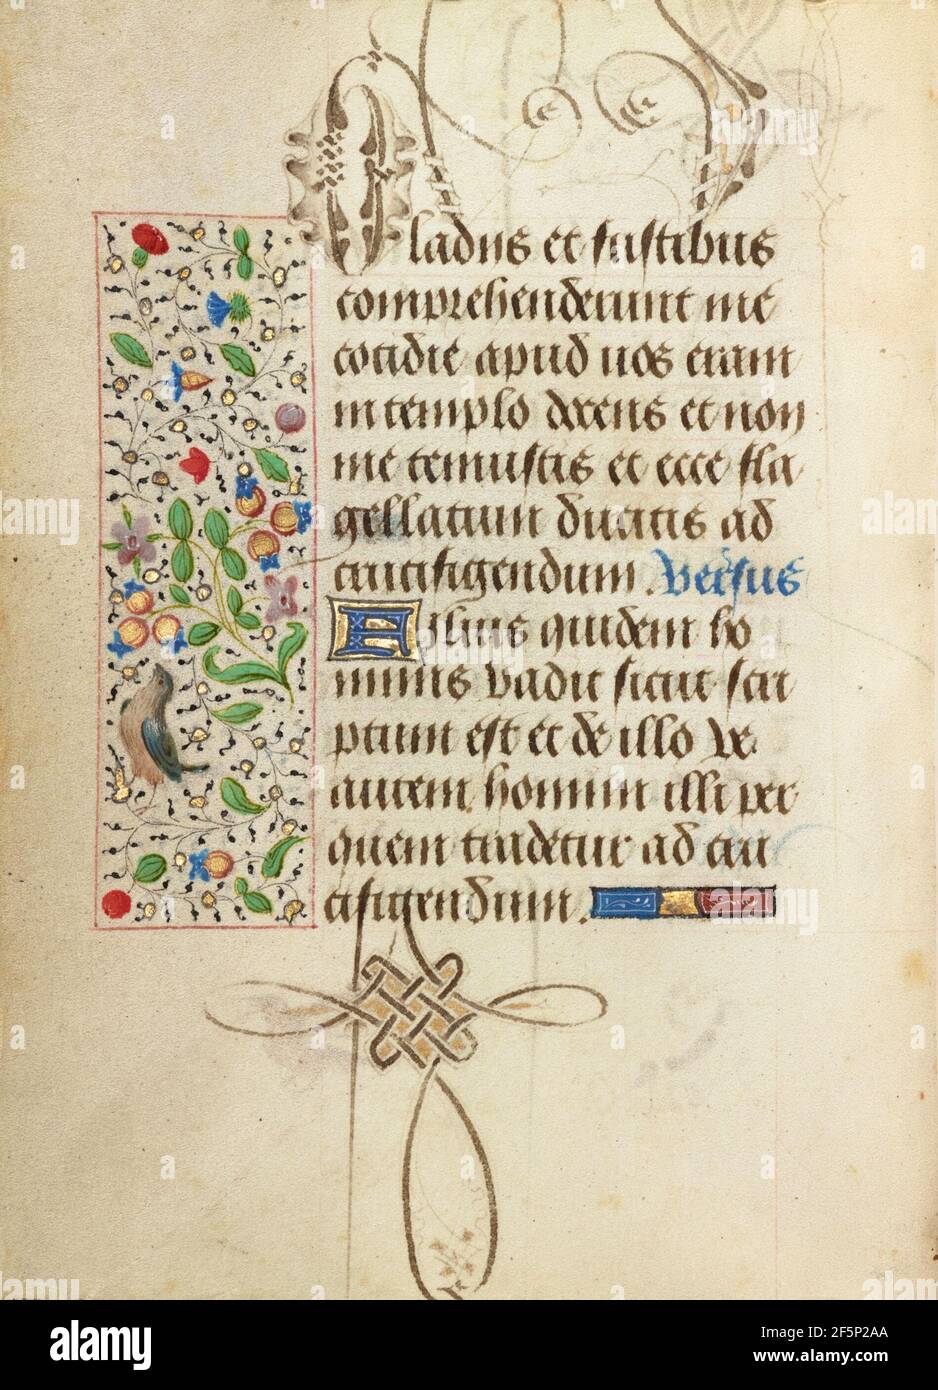 Gladiis et fustibus
comprehenderunt me
cotidie apud vos eram
in templo docens et non
me tenuistis et ecce fla
gellatum ducitis ad
crucifigendum. Versus
Filius quidem ho
minis vadit sicut scri
ptum est et de illo ve
autem homini illi per
quem tradetur ad cru
cifigendum.
alamy
Image ID: 2F5P2AA
www.alamy.com